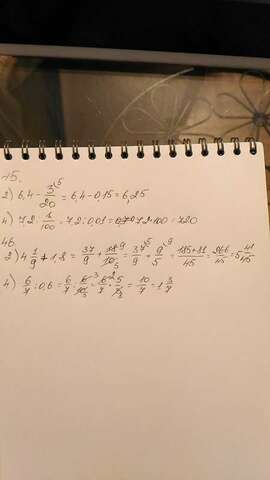 45.
2) 6,4 - 3/20 ⁵ = 6,4 - 0,15 = 6,25
4) 7,2 : 1/100 = 7,2 : 0,01 = 7,2·100 = 720
46
2) 4 1/9 + 1,8 = 37/9 + 18/10 ⁹ ₅ = 37/9 ⁵ + 9/5 ⁹ = 185+81/45 = 266/45 = 5 41/45
4) 6/7 : 0,6 = 6/7 : 6/10 ³ ₅ = 6/7 ² · 5/3 = 10/7 = 1 3/7